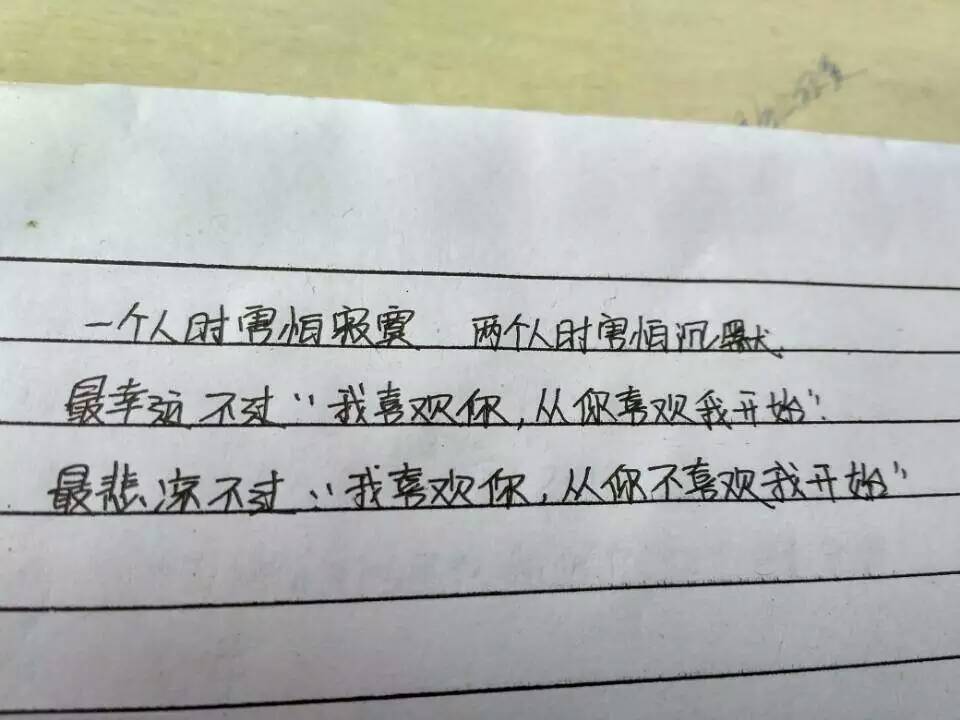 一个人时害怕寂寞 两个人时害怕沉默.
最幸运不过“我喜欢你,从你喜欢我开始”.
最悲凉不过“我喜欢你,从你不喜欢我开始”